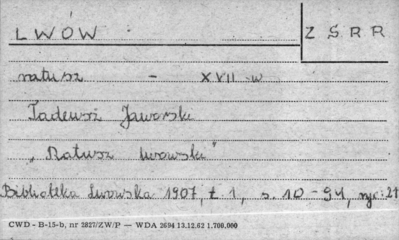 LWÓW
ZSRR
ratusz - XVII w
Tadeusz Jaworski
"Ratusz lwowski"
Biblioteka Lwowska 1907, t 1, s. 10-94, ryc: 21
CWD - B-15-b, nr 2827/ZW/P — WDA 2694 13.12.62 1.700.000